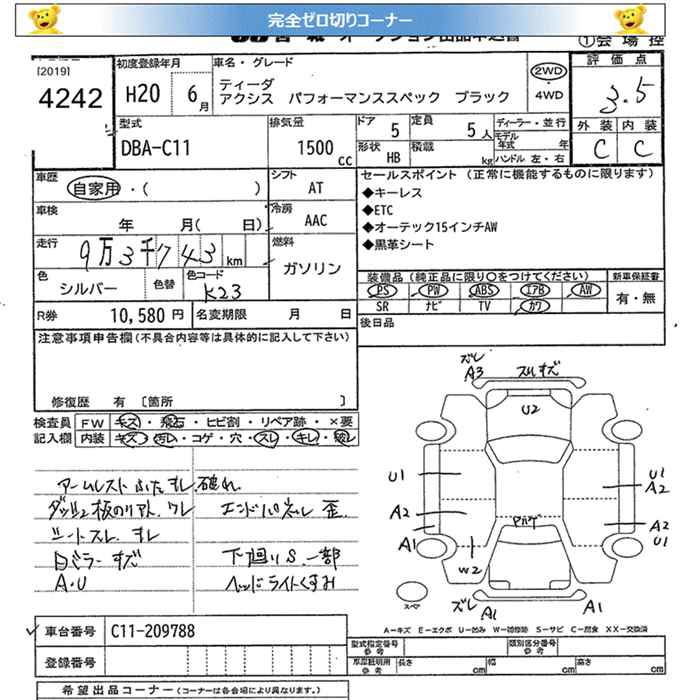 完全ゼロ切りコーナー
①会場控
[2019]
4242
初度登録年月
H20 6月
車名・グレード
ティーダ
アクシス パフォーマンススペック ブラック
2WD
・4WD
評価点
3.5
外装 内装
C C
型式
DBA-C11
排気量
1500 cc
ドア 5
定員 5人
形状 HB
積載 kg
ディーラー・並行
モデル年式 年
ハンドル 左・右
車歴
自家用・( )
シフト
AT
車検
年 月( 日)
冷房
AAC
走行
9万3千743 km
燃料
ガソリン
色
シルバー
色替
色コード
K23
R券 10,580 円
名変期限 月 日
セールスポイント (正常に機能するものに限ります)
◆キーレス
◆ETC
◆オーテック15インチAW
◆黒革シート
装備品 (純正品に限り○をつけてください)
PS PW ABS エアB AW
SR ナビ TV カワ
新車保証書
有・無
後日品
注意事項申告欄 (不具合内容等は具体的に記入して下さい)
修復歴 有 [箇所 ]
検査員記入欄
FW キズ・飛石・ヒビ割・リペア跡・×要
内装 キズ・汚レ・コゲ・穴・スレ・キレ・破レ
アームレストふたすレ、破れ
エンドパネル 歪
シートスレ、すレ
ミラーすズ
下廻りS 一部
A・U
ヘッドライトくすみ
ズレ
A3
U2
U1
U1
A2
A2
A2
A1
U1
W2
ズレ
A1
A1
スペア
A-キズ E-エクボ U-凹み W-補修跡 S-サビ C-腐食 XX-交換済
車台番号 C11-209788
登録番号
型式指定番号 参考
類別区分番号 参考
車庫証明用 参考
長さ cm
幅 cm
高さ cm
希望出品コーナー (コーナーは各会場により異なります。)